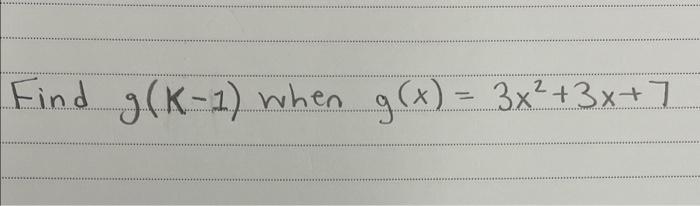 Find g(K-1) when g(x) = 3x²+3x+7